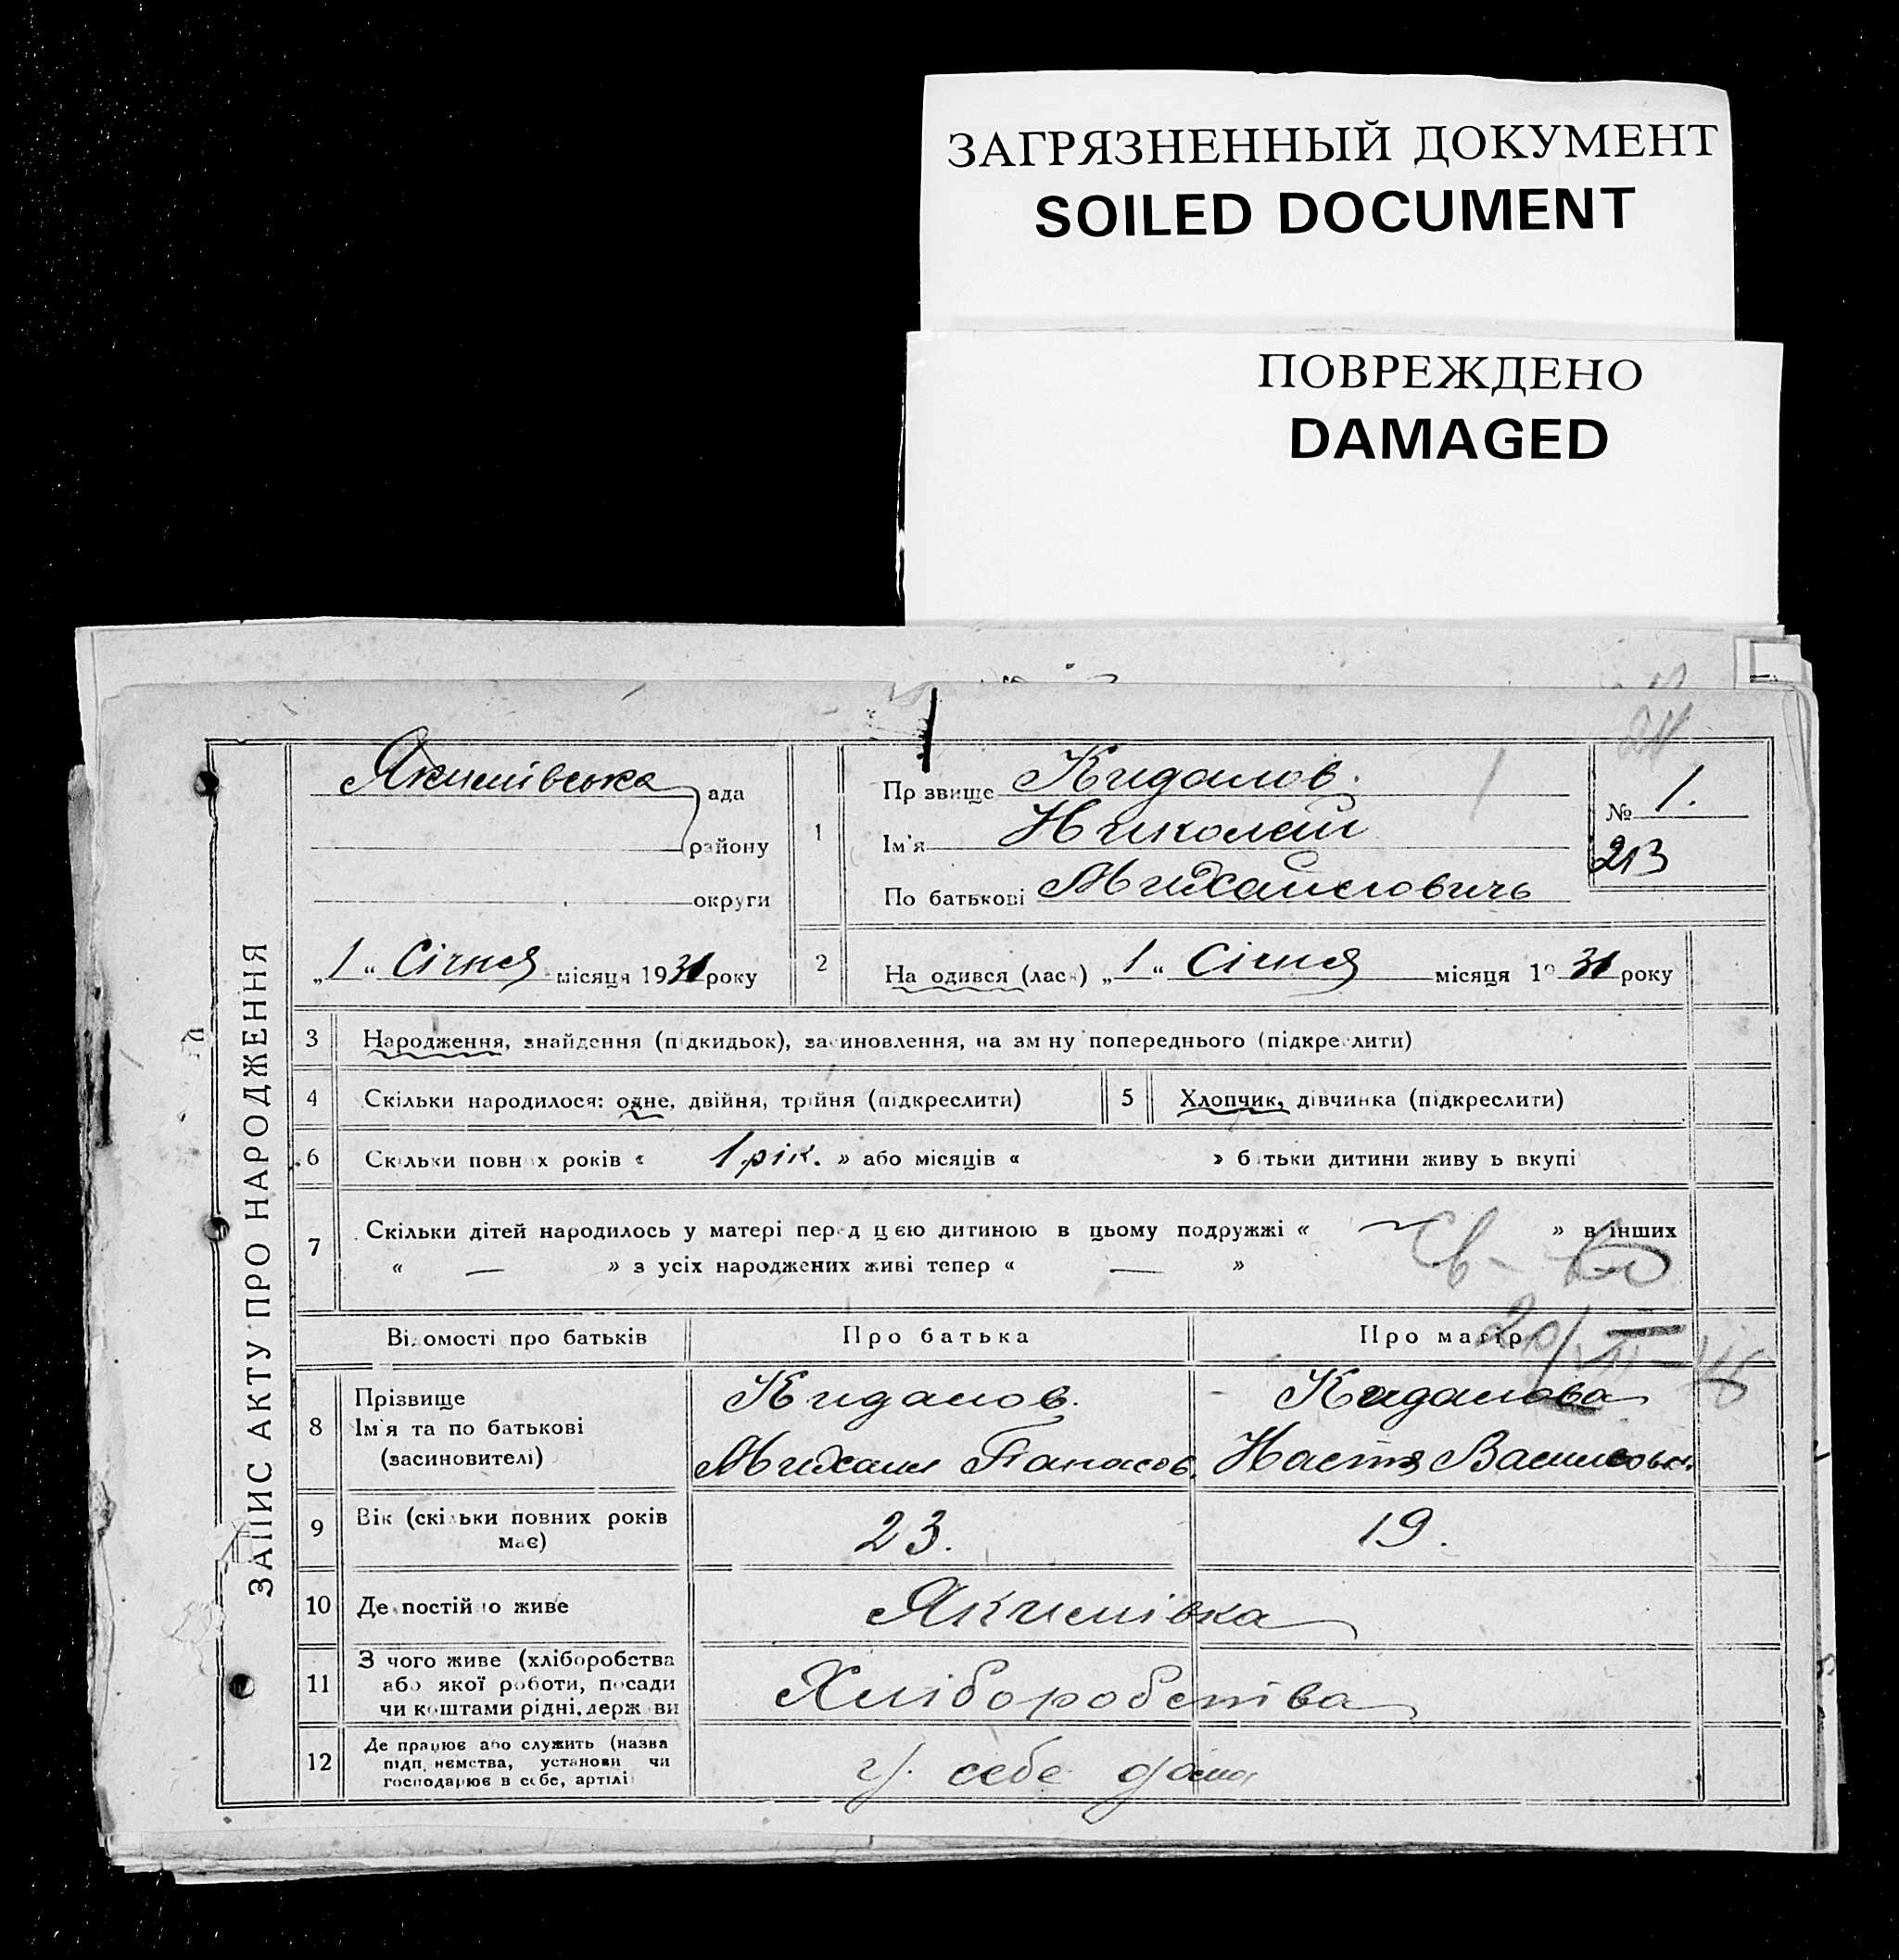 ЗАГРЯЗНЕННЫЙ ДОКУМЕНТ
SOILED DOCUMENT
ПОВРЕЖДЕНО
DAMAGED
ЗАПИС АКТУ ПРО НАРОДЖЕННЯ
Якимівська ада
району
округи
„1“ Січня місяця 1931 року
1
Пр звище Кидалов.
Ім'я Николай
По батькові Михайловичь
№ 1.
213
2
На одився (лась) „1“ Січня місяця 19 31 року
3 Народження, знайдення (підкидьок), засиновлення, на зм ну попереднього (підкреслити)
4 Скільки народилося: одне, двійня, трійня (підкреслити)
5 Хлопчик, дівчинка (підкреслити)
6 Скільки повн х років « 1 рік. » або місяців « » батьки дитини живу ь вкупі
7 Скільки дітей народилось у матері перед цією дитиною в цьому подружжі « — » в інших
« — » з усіх народжених живі тепер « — »
20/VII-46
Відомості про батьків Про батька Про матір
8 Прізвище
Ім'я та по батькові
(засиновителі)
Кидалов.
Михаил Панасов.
Кидалова
Настя Василовн.
9 Вік (скільки повних років
має)
23. 19.
10 Де постійно живе Якимівка
11 З чого живе (хліборобства
або якої роботи, посади
чи коштами рідні, держ ви
Хліборобства
12 Де працює або служить (назва
підп ємства, установи чи
господарює в себе, артілі
у себе дома